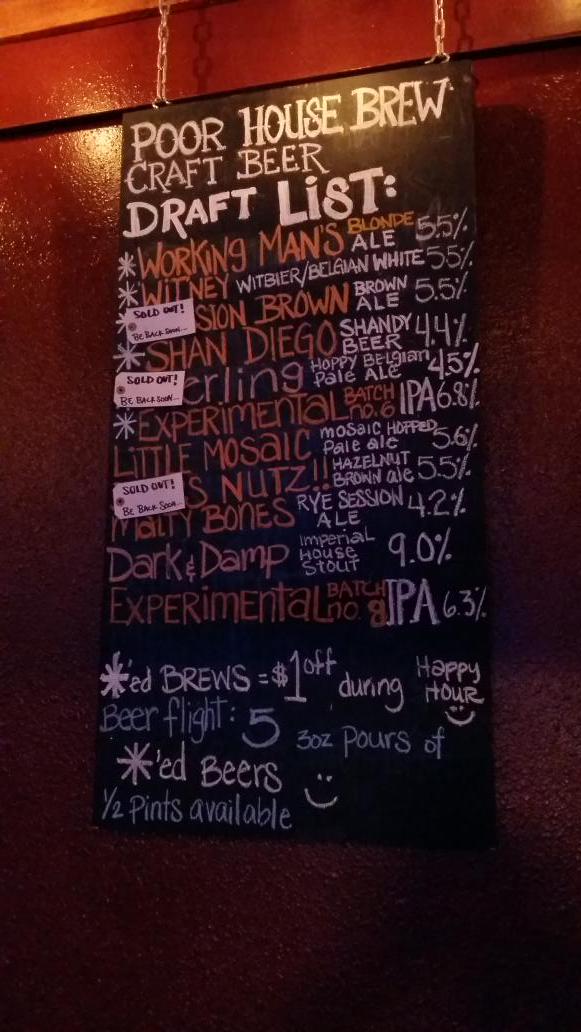 POOR HOUSE BREW
CRAFT BEER
DRAFT LiST:
*WORKING MAN'S BLONDE ALE 5.5%
*WITNEY WITBIER/BELGIAN WHITE 5.5%
SOLD OUT! BE BACK SOON... SION BROWN BROWN ALE 5.5%
*SHAN DIEGO SHANDY BEER 4.4%
SOLD OUT! BE BACK SOON... erling HOPPY BELGIAN Pale ALE 4.5%
*EXPERIMENTAL BATCH no. 6 IPA 6.8%
LITTLE MOSAIC mosaic HOPPED Pale ale 5.6%
SOLD OUT! BE BACK SOON... S NUTZ!! HAZELNUT BROWN ale 5.5%
MALTY BONES RYE SESSION ALE 4.2%
Dark & Damp Imperial House Stout 9.0%
EXPERIMENTAL BATCH no 8 IPA 6.3%
*'ed BREWS = $1 off during HAPPY HOUR
Beer flight: 5 3oz Pours of
*'ed Beers
1/2 Pints available